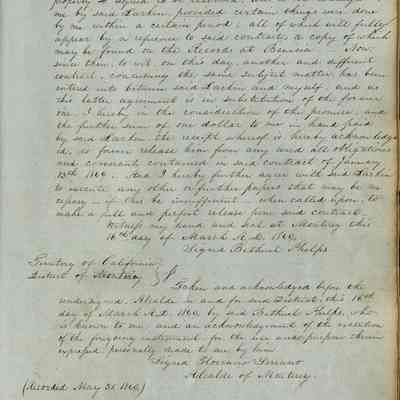 property to agreed to be
me by said Larkin, provided certain things were done
by me within a certain period; all of which will fully
appear by a reference to said contract, a copy of which
may be found on the Records at Benicia. Now,
since then, to wit, on this day, another and different
contract, concerning the same subject matter, has been
entered into between said Larkin and myself, and as
this latter agreement is in substitution of the former
one, I hereby in the consideration of the premises, and
the further sum of one dollar to me in hand paid
by said Larkin the receipt whereof is hereby acknowledg
ed, do forever release him from any and all obligations
and covenants contained in said contract of January
And I hereby further agree with said Larkin
to execute any other or further papers that may be ne
cessary - if this be insufficient - when called upon, to
make a full and perfect release from said contract.
Witness my hand and seal at Monterey this
16th day of March A.D.
Signed Bethuel Phelps
Territory of California
District of Monterey
Taken and acknowledged before the
undersigned, Alcalde in and for said District, this 16th
day of March A.D. by said Bethuel Phelps, who
is known to me, and an acknowledgment of the execution
of the foregoing instrument for the use and purpose therein
expressed personally made to me by him
Signed Florencio Serrano
Alcalde of Monterey.
(Recorded May